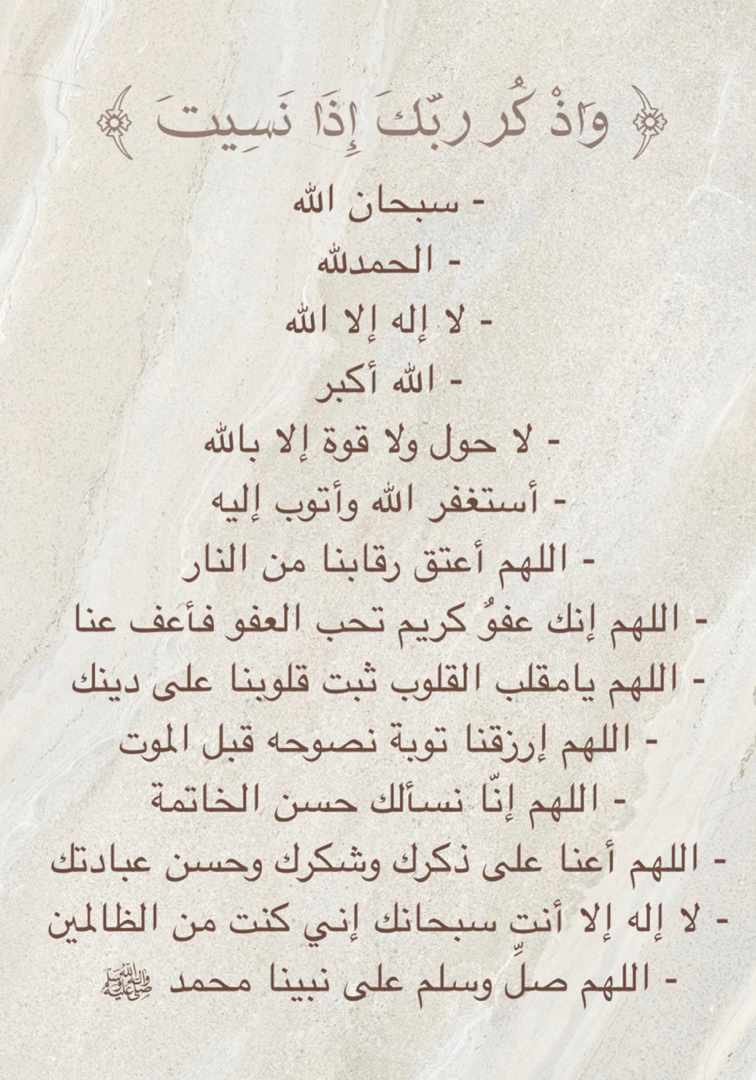 ﴿ وَاذْكُر ربّكَ إِذَا نَسِيتَ ﴾
- سبحان الله
- الحمدلله
- لا إله إلا الله
- الله أكبر
- لا حول ولا قوة إلا بالله
- أستغفر الله وأتوب إليه
- اللهم أعتق رقابنا من النار
- اللهم إنك عفوٌ كريم تحب العفو فأعف عنا
- اللهم يامقلب القلوب ثبت قلوبنا على دينك
- اللهم إرزقنا توبة نصوحه قبل الموت
- اللهم إنّا نسألك حسن الخاتمة
- اللهم أعنا على ذكرك وشكرك وحسن عبادتك
- لا إله إلا أنت سبحانك إني كنت من الظالمين
- اللهم صلِّ وسلم على نبينا محمد ﷺ